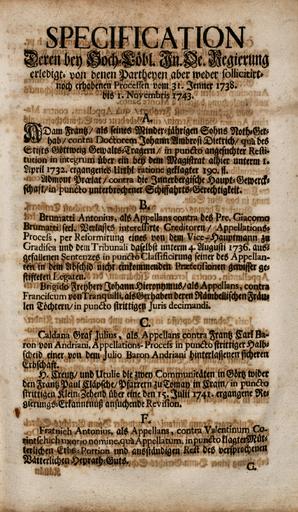 SPECIFICATION
Deren bey Hoch-Löbl. In. Oe. Regierung
erledigt- von denen Partheyen aber weder sollicitirt-
noch erhobenen Processen vom 31. Jenner 1738.
bis 1. Novembris 1743.
A.
ADam Frantz, als seines Minder-jährigen Sohns Noth-Ger-
hab, contra Doctorem Johann Ambrosi Dietrich, quà des
Stifts Göttweig Gewalts-Tragern, in puncto angesuchter Resti-
tution in integrum über ein bey dem Magistrat allhier unterm 1.
April 1732. ergangenes Urthl ratione geklagter 190. fl.
Admont Prælat, contra die Innerbergische Haupt-Gewerck-
schafft, in puncto unterbrochener Schiffahrts-Gerechtigkeit.
B.
Brumatti Antonius, als Appellans contra des Pre. Giacomo
Brumatti seel. Verlasses interessirte Creditoren, Appellations-
Process, per Reformirung eines von dem Vice-Hauptmann zu
Gradisca und dem Tribunali daselbst unterm 4. Augusti 1736. aus-
gefallenen Sentenzes in puncto Classificirung seiner des Appellan-
ten in dem Abschid nicht einkommenden Prætensionen gewisser ge-
stiffteten Legaten.
Brigido Freyherr Johann Hieronymus, als Appellans, contra
Franciscum von Tranquilli, als Gerhaben deren Raunbellischen Fräu-
len Töchtern, in puncto strittigen Juris decimandi.
C.
Caidana Graf Julius, als Appellans contra Frantz Carl Ba-
ron von Andriani, Appellations-Process in puncto strittiger Halb-
scheid einer von dem Julio Baron Andriani hinterlassenen sicheren
Erbschafft.
H. Creutz, und Utulie die zwey Communitäten in Görtz wider
den Frantz Paul Cläpsche, Pfarrern zu Comay in Crain, in puncto
strittigen Klein-Zehend über eine den 15. Julii 1741. ergangene Re-
gierungs-Erkanntnuß ansuchende Revision.
F.
Fratnich Antonius, als Appellans, contra Valentinum Co-
rintschich uxorio nomine, quà Appellatum, in puncto klagter Müt-
terlichen Erbs-Portion und ausständigen Rest des versprochenen
Vätterlichen Heyrath-Guts.
G.